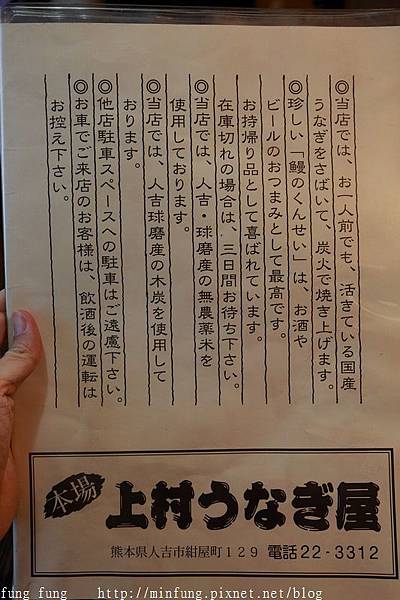 ◎当店では、お一人前でも、活きている国産
うなぎをさばいて、炭火で焼き上げます。
◎珍しい「鰻のくんせい」は、お酒や
ビールのおつまみとして最高です。
お持帰り品として喜ばれています。
在庫切れの場合は、三日間お待ち下さい。
◎当店では、人吉・球磨産の無農薬米を
使用しております。
◎当店では、人吉球磨産の木炭を使用して
おります。
◎他店駐車スペースへの駐車はご遠慮下さい。
◎お車でご来店のお客様は、飲酒後の運転は
お控え下さい。
本場
上村うなぎ屋
熊本県人吉市紺屋町129 電話22-3312
fung fung http://minfung.pixnet.net/blog